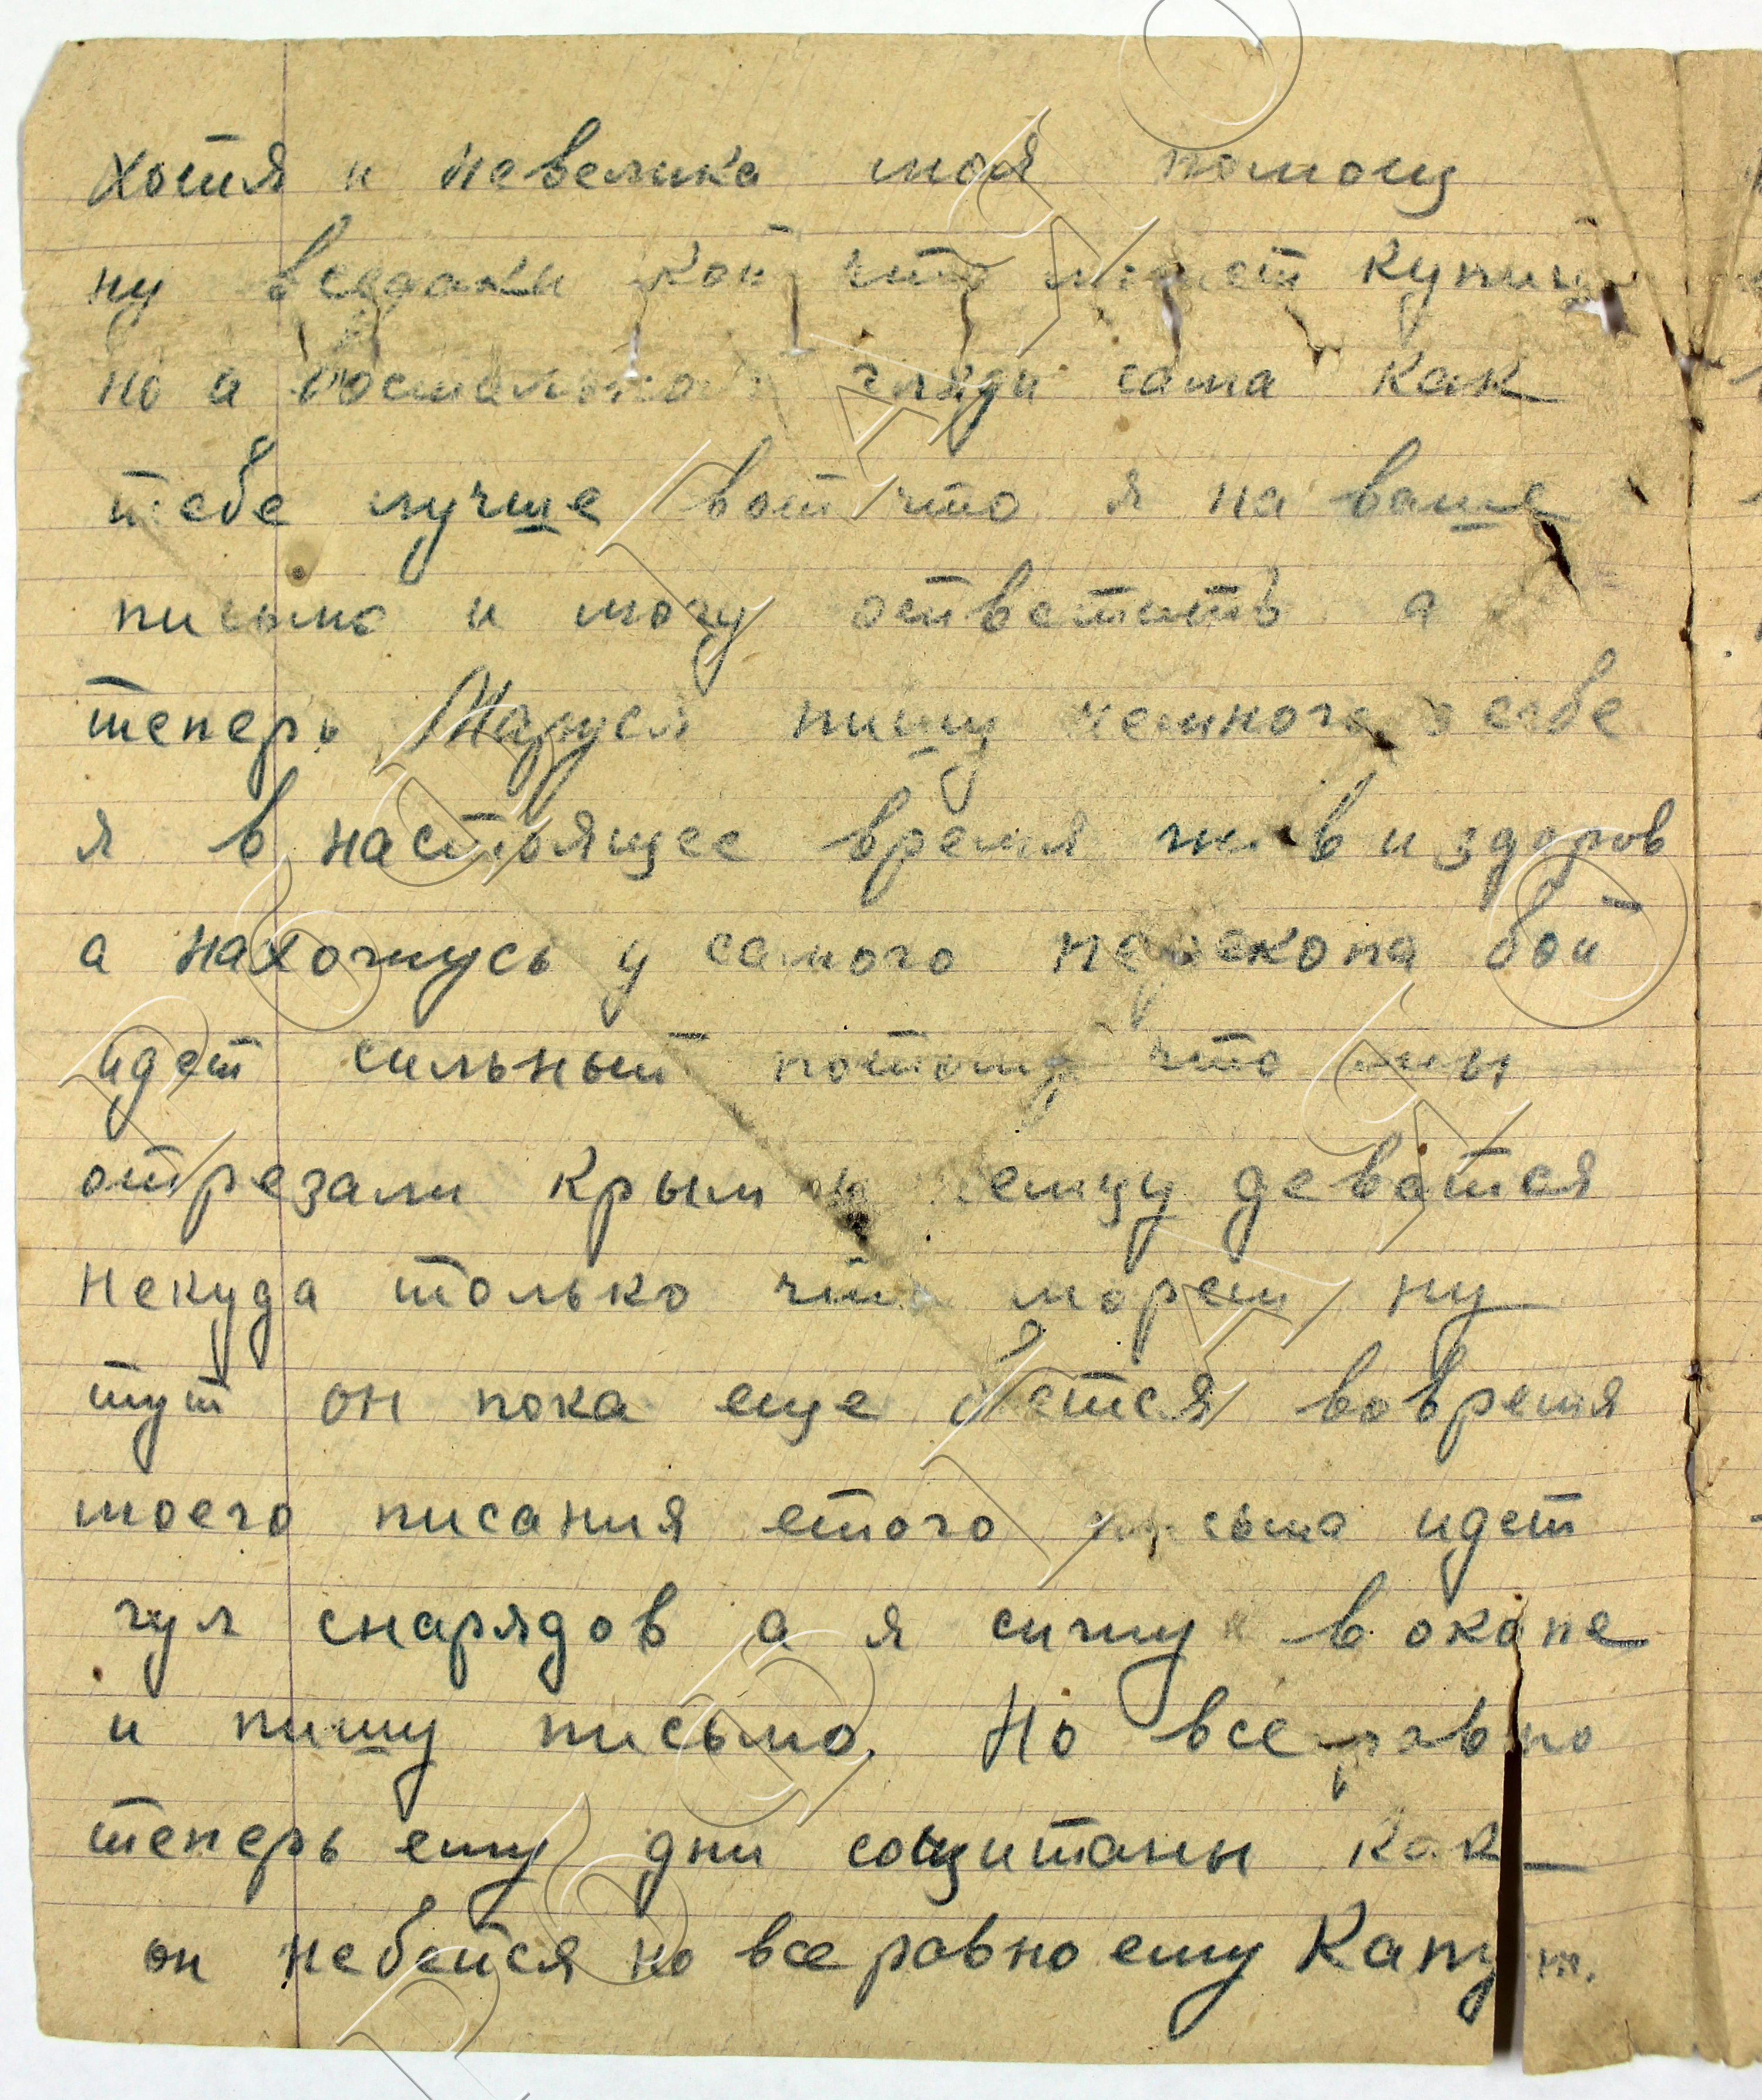 хотя и невелика моя помощ
ну вседаки кой что может купиш
но а востальном гляди сама как
тебе лучше вот что я на ваше
письмо и могу ответить а
теперь Маруся пишу немного о себе
я в настоящее время жив и здоров
а нахожусь у самого перекопа бой
идет сильный потому что мы
отрезали Крым и немцу деватся
некуда только что морем ну
тут он пока еще бется вовремя
моего писания етого письма идет
гул снарядов а я сижу в окопе
и пишу письмо. Но все равно
теперь ему дни сощитаны как
он небейся но все равно ему Капут.